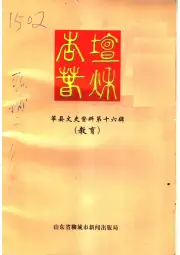 1502
杏壇
春秋
莘县文史资料第十六辑
（教育）
山东省聊城市新闻出版局